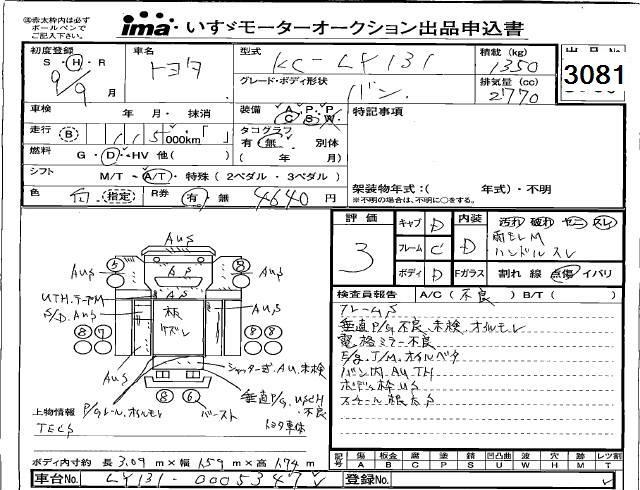 ※赤太枠内は必ず
ボールペンで
ご記入下さい。
ima いすゞモーターオークション出品申込書
初度登録 車名 型式 積載 (kg) 出品No.
S・H・R トヨタ KC-LY131 1350 3081
9/9 月 グレード・ボディ形状 排気量 (cc)
バン 2770
車検 年 月・ 抹消 装備 A・P・P 特記事項
C S W
走行 B 115 000km タコグラフ
有・無 別体
燃料 G・D・HV 他( ) ( 年 月)
シフト M/T・A/T・特殊 (2ペダル・3ペダル)
架装物年式:( 年式)・不明
色 白 指定 R券 有・無 4640 円 ※不明の場合は、不明に○をする。
評価 キャブ D 内装 汚れ 破れ ヤニ スレ
3 フレーム C D 雨モレM
ハンドルスレ
ボディ D Fガラス 割れ 線 点傷 イバリ
AUS
AUS 5 8 AUS
AS
UTH.テープM
S/D.AUS 板 AUS
ケズレ
8 7 8 8
AUS シャッター式 AU.未検
8 6 バースト
垂直P/G.USCH
不良
トヨタ車体
検査員報告 A/C(不良) B/T( )
フレームS
垂直P/G不良.未検.オイルモレ
電格ミラー不良
E/g.T/M.オイルベタ
バン内.AUTH
上物情報 P/Gレール.オイルモレ
TECS
記号 傷A 板金B 腐C 塗P 錆S 凹凸曲U 波W 穴H 跡M レツ割T
ボディ内寸約 長 3.09 m × 幅 1.59 m × 高 1.74 m
車台No. LY131-0005347 登録No.